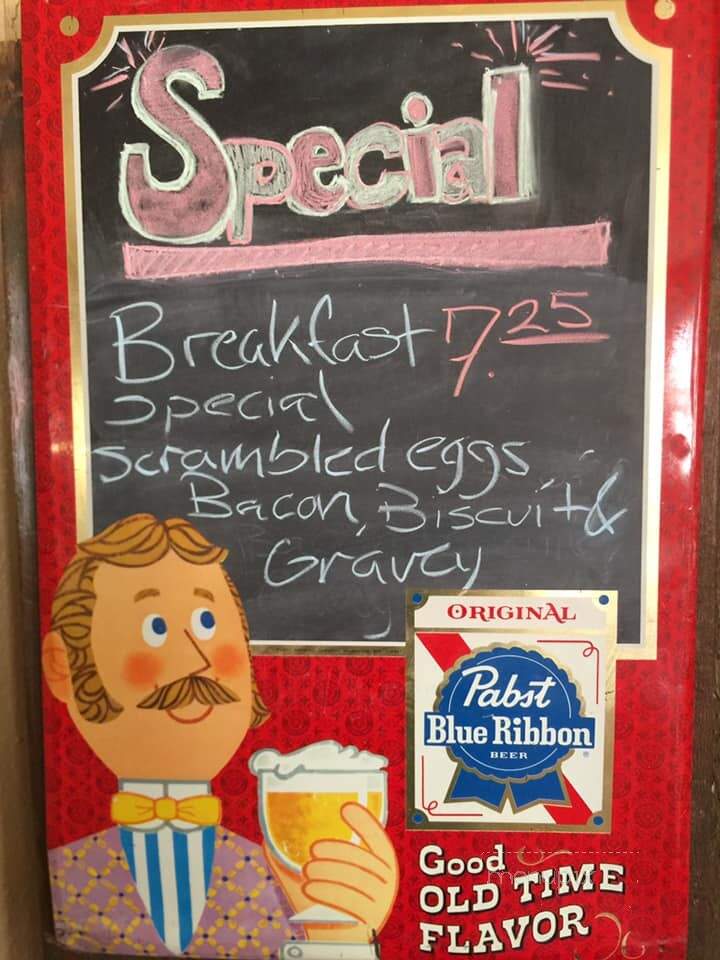 Special
Breakfast 7.25
special
scrambled eggs
Bacon, Biscuit &
Gravey
ORIGINAL
Pabst
Blue Ribbon
BEER
Good
OLD TIME
FLAVOR